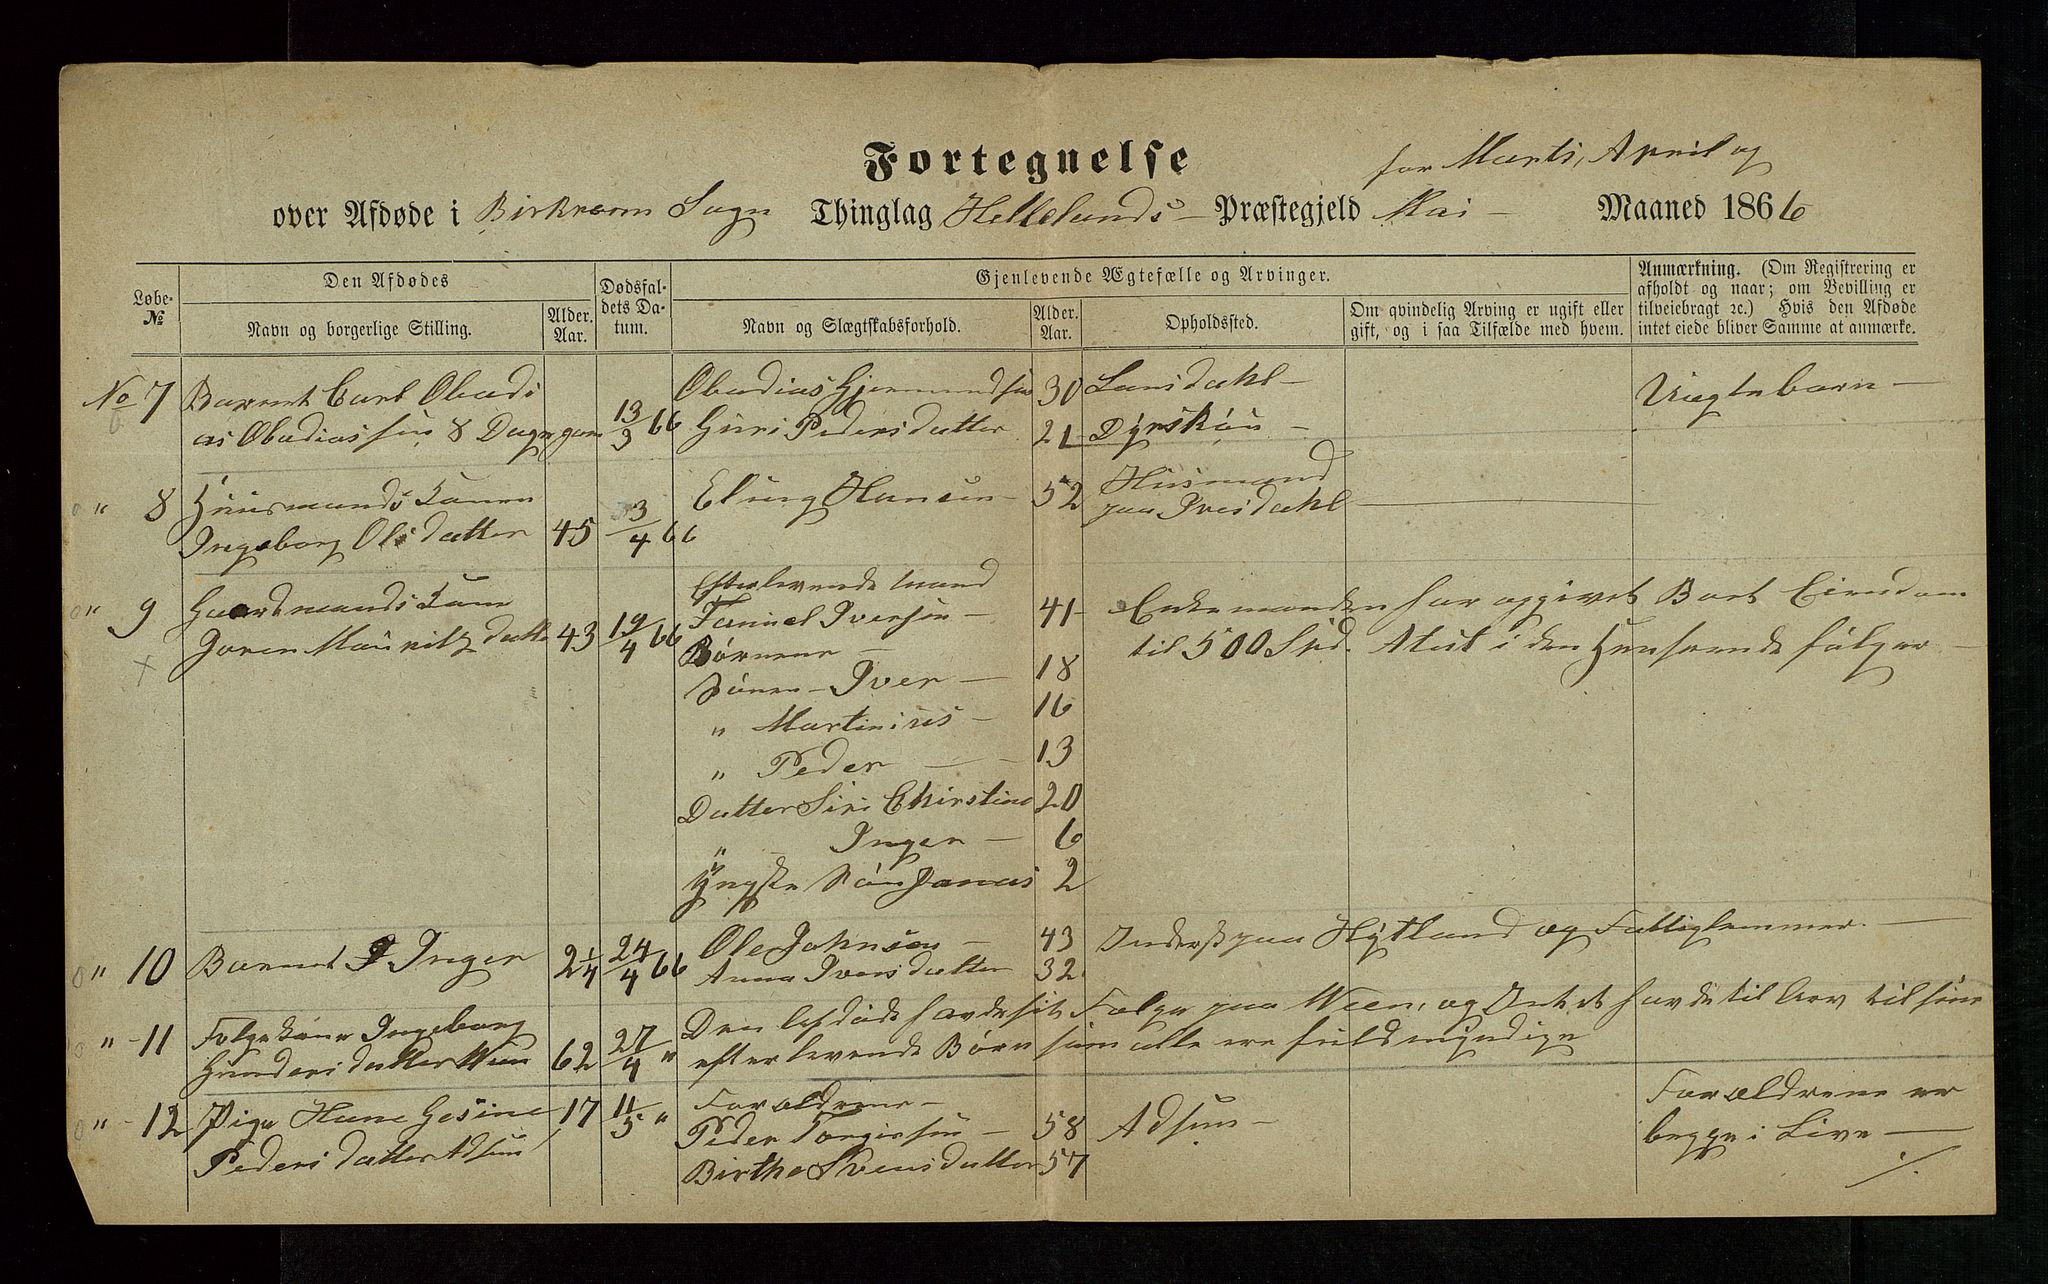 Fortegnelse
for Marts, April og
over Afdøde i Birkrem Sogn Thinglag Hellelands Præstegjeld Mai Maaned 1866
Løbe-№
Den Afdødes
Navn og borgerlige Stilling.
Alder. Aar.
Dødsfaldets Datum.
Gjenlevende Ægtefælle og Arvinger.
Navn og Slægtskabsforhold.
Alder. Aar.
Opholdssted.
Om qvindelig Arving er ugift eller
gift, og i saa Tilfælde med hvem.
Anmærkning. (Om Registrering er
afholdt og naar; om Bevilling er
tilveiebragt ꝛc.) Hvis den Afdøde
intet eiede bliver Samme at anmærke.
No 7 Barnet Carl Obadi Obadias Gjermundsen 30 Lausdahl Uægtebarn
as Obadiassen 8 Dage gam 13/3 66 Guri Pedersdatter 21 Dyrskou
" 8 Huusmands Konen Elling Hansen 52 Husmand
Ingeborg Olsdatter 45 3/4 66 paa Ivesdahl
" 9 Gaardmands Kone Efterlevende Mand
Joren Mauritzdatter 43 19/4 66 Tønnes Iversen 41 Enkemanden har opgivet Boet Eiendom
Børnene til 500 Spd. Attest i den Henseende følger
Sønen Iver 18
" Martinius 16
" Peder 13
Datter Siri Christine 20
" Inger 6
Yngste Søn Jonas 2
" 10 Barnet Inger 2¼ 24/4 66 Ole Johnsen 43 Inderst paa Hytland og Fattiglemmer
Anna Iversdatter 32
" 11 Folgekone Ingeborg 27/4 " Den Afdøde havde sit Folge paa Veen, og Intet havde til Arv til sine
Gundersdatter Veen 62 efterlevende Børn som alle ere fuldmyndige
" 12 Pige Hane Gesine 17 11/5 " Forældrene Forældrene er
Pedersdatter Adsen Peder Torgersen 58 Adsen begge i Live
Birthe Svensdatter 57